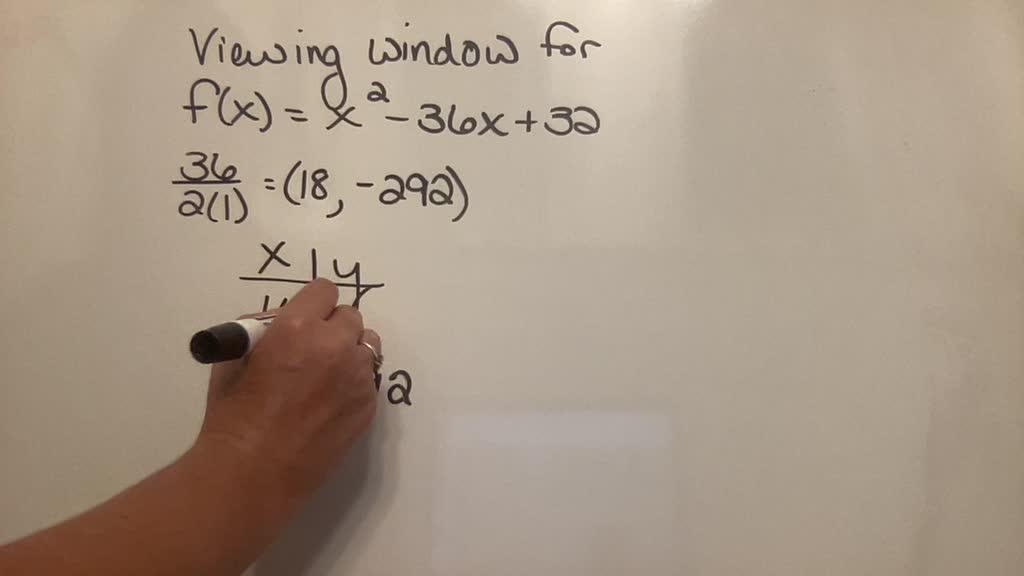 Viewing window for
f(x) = x² - 36x + 32
36
2(1) = (18, -292)
x | y
2